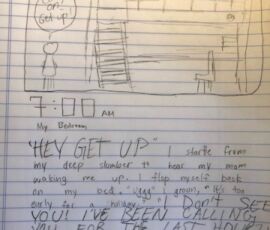 on
Get up
7:00 AM
My Bedroom
"HEY GET UP" I starte from
my deep slumber to hear my mom
waking me up. I flop myself back
on my bed. "Uggg" I groan, "It's too
early for a holiday." "I DON'T SEE
YOU! I'VE BEEN CALLING
YOU FOR THE LAST HOUR